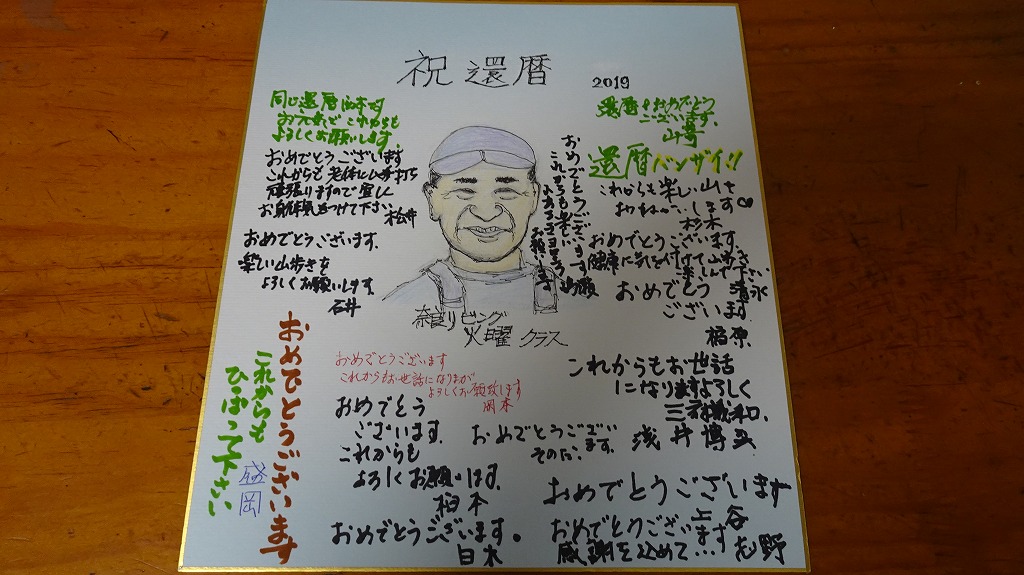 祝 還暦
2019
同じ還暦
お元気で これからも
よろしくお願いします。
おめでとうございます
これからも 老体にムチ打ち
頑張りますので宜しく
お身体気をつけて下さい
松井
おめでとうございます。
楽しい山歩きを
よろしくお願いします。
石井
還暦おめでとう
ございます。
山嵜
還暦バンザイ!!
これからも楽しい山を
します♡
杉木
おめでとうございます
これからも楽しい
お願いします
おめでとうございます。
健康に気を付けて山歩き
楽しんで下さい
清水
おめでとう
ございます。
福原
奈良リビング
火曜 クラス
おめでとうございます
これからもお世話になりますが
よろしくお願い致します
岡本
おめでとう
ございます。
これからも
よろしくお願いします。
柏木
おめでとうござい
ます。
そのだ。
これからもお世話
になりますよろしく
三
浅井博
おめでとうございます
これからも
ひっぱって下さい
盛岡
おめでとうございます
上谷
おめでとうございます。
日木
おめでとうございます
感謝を込めて…
野